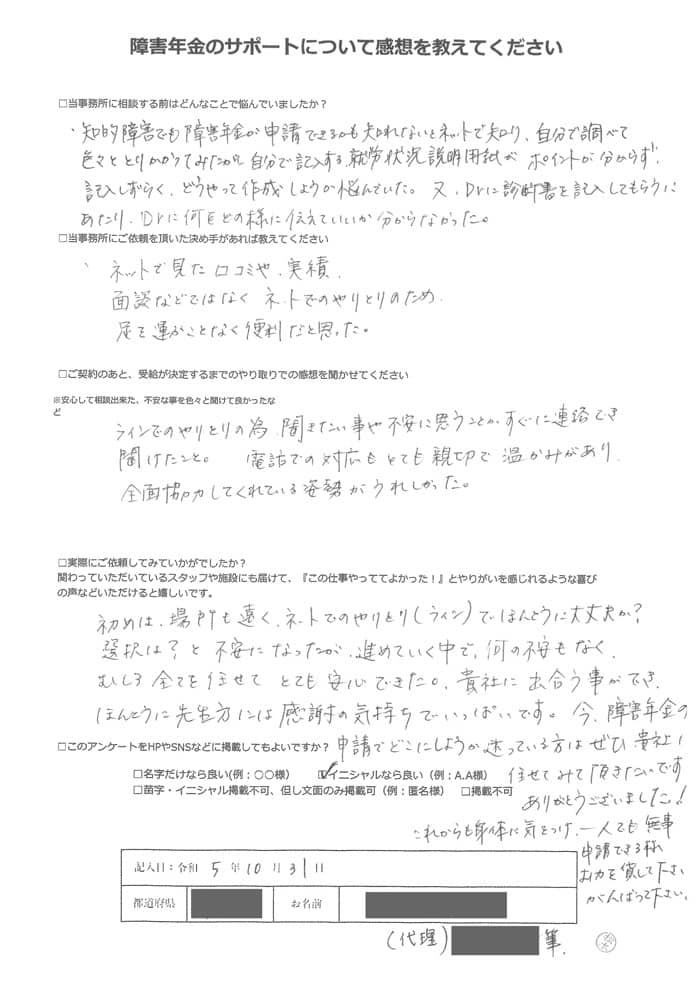 障害年金のサポートについて感想を教えてください
□当事務所に相談する前はどんなことで悩んでいましたか？
・知的障害でも障害年金が申請できるかも知れないとネットで知り、自分で調べて
色々ととりかかってみたが、自分で記入する就労状況説明用紙が ポイントが分からず、
記入しずらく、どうやって作成しようか悩んでいた。又、Drに診断書を記入してもらうに
あたり、Drに何をどの様に伝えていいか分からなかった。
□当事務所にご依頼を頂いた決め手があれば教えてください
、ネットで見た口コミや、実績、
面談などではなく ネットでのやりとりのため、
足を運ぶことなく便利だと思った。
□ご契約のあと、受給が決定するまでのやり取りでの感想を聞かせてください
※安心して相談出来た、不安な事を色々と聞けて良かったな
ど
ラインでのやりとりの為、聞きたい事や不安に思うことが、すぐに連絡でき
聞けたこと。 電話での対応もとても親切で温かみがあり、
全面協力してくれている姿勢がうれしかった。
□実際にご依頼してみていかがでしたか？
関わっていただいているスタッフや施設にも届けて、『この仕事やっててよかった！』とやりがいを感じれるような喜び
の声などいただけると嬉しいです。
初めは、場所も遠く、ネットでのやりとり(ライン)でほんとうに大丈夫か？
選択は？と 不安になったが、進めていく中で、何の不安もなく、
むしろ全てを任せて とても安心できた。貴社に出合う事ができ、
ほんとうに先生方には感謝の気持ちでいっぱいです。今、障害年金の
□このアンケートをHPやSNSなどに掲載してもよいですか？ 申請でどこにしようか迷っている方はぜひ貴社に
□名字だけなら良い(例：○○様） ☑イニシャルなら良い（例：A.A様） 任せてみて頂きたいです
□苗字・イニシャル掲載不可、但し文面のみ掲載可（例：匿名様） □掲載不可 ありがとうございました！
これからも身体に気をつけ、一人でも無事
申請できる様
お力を貸して下さい
がんばって下さい。
記入日：令和 5 年 10 月 31 日
都道府県 お名前
(代理) 筆、